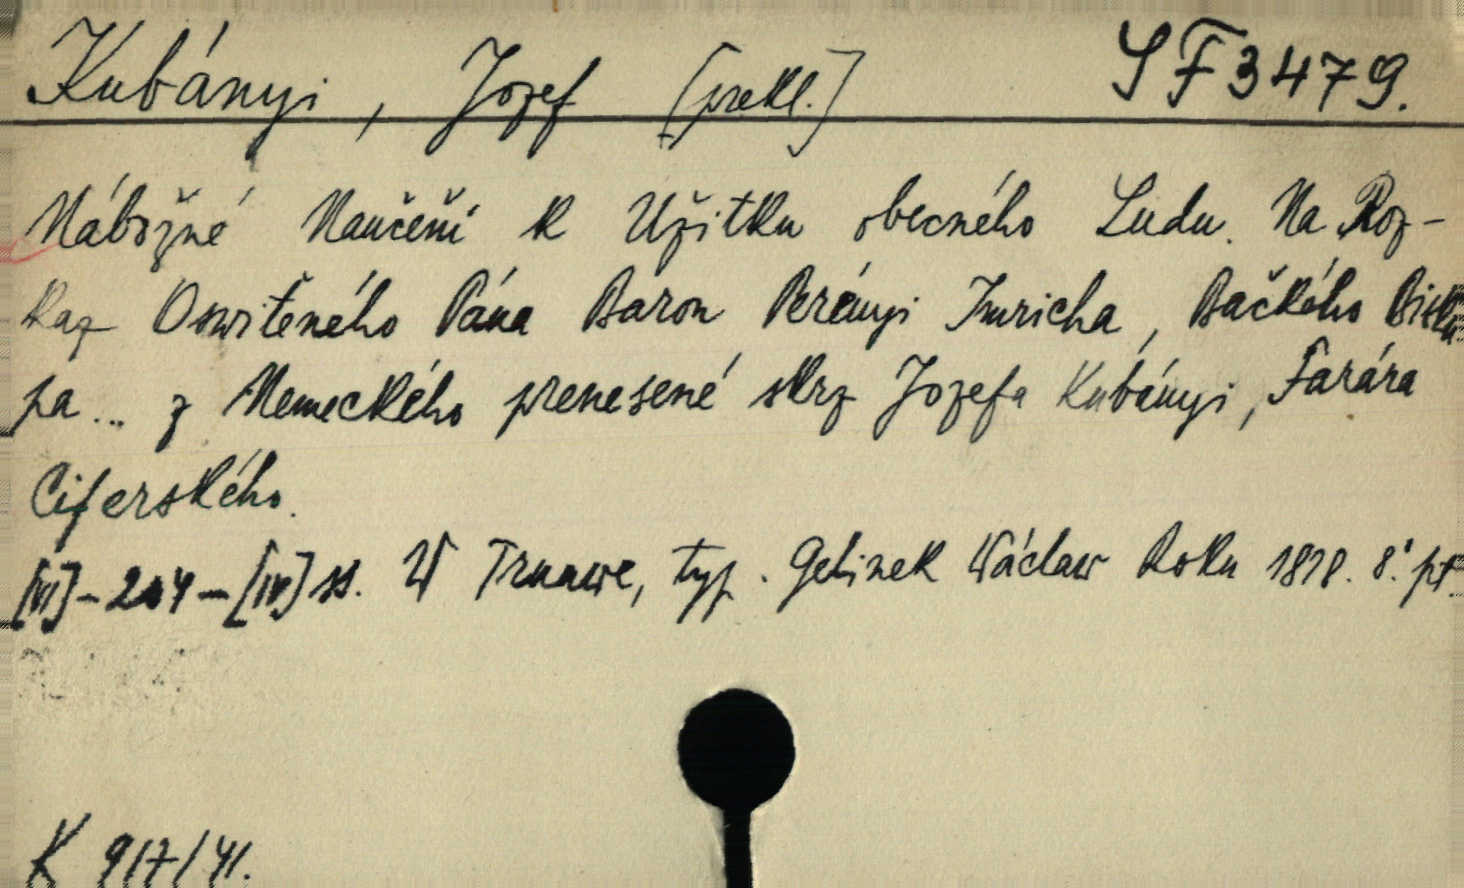 Kubányi, Jozef [prekl.] SF 3479.
Nábožné Naučeňí k Užitku obecného Ludu. Na Roz-
kaz Oswiťeného Pána Baron Perényi Imricha, Bačkého Bisku-
pa... z Nemeckého prenesené skrz Jozefa Kubányi, Farára
Ciferského.
[VI]-204-[IV] ss. W Trnawe, typ. Gelinek Wáclaw Roku 1818. 8.° pt.
K 917/41.